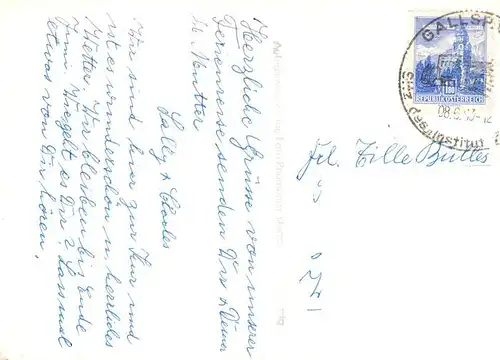 Herzliche Grüsse von unserer
Ferienreise senden Dir & Deiner
lb. Mutter
Sally & Charles
Wir sind hier zur Kur und
ist es wunderschön u. herrliches
Wetter. Wir bleiben bis Ende
Juni. Wie geht es Dir? Lass mal
etwas von Dir hören.
GALLSP
Institut
REPUBLIK ÖSTERREICH
Frl. Tille Butles